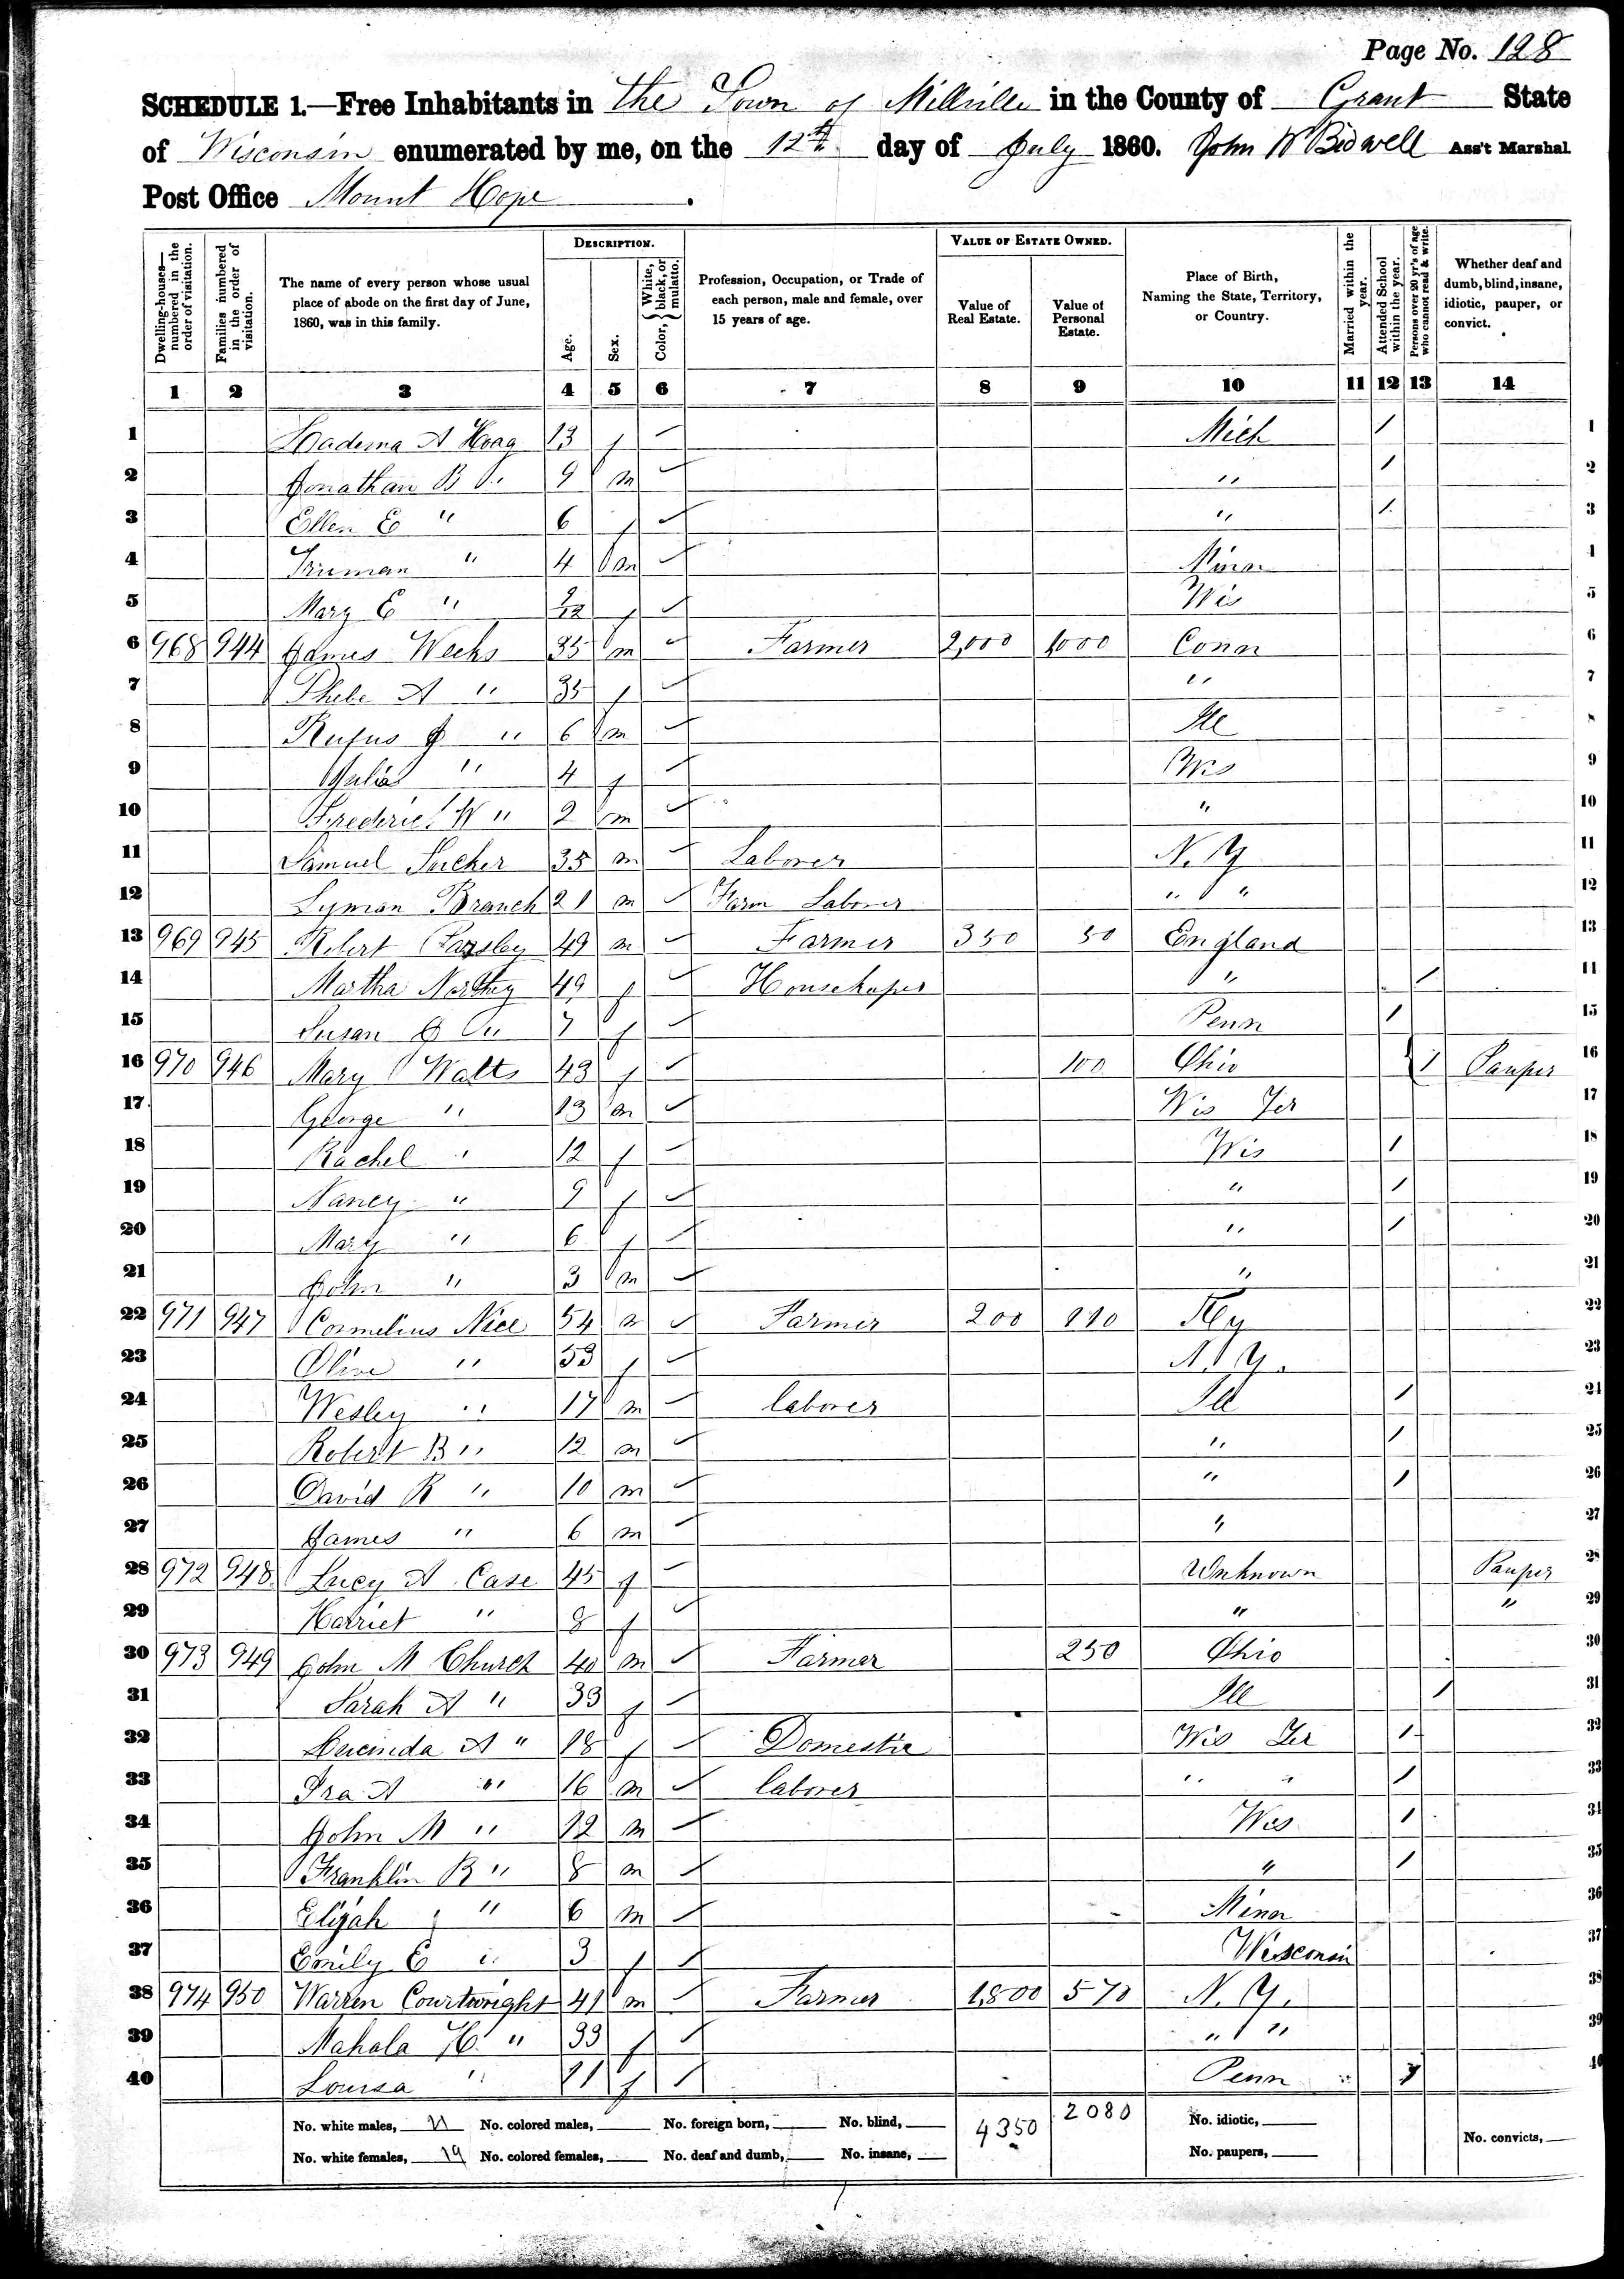 Page No. 128
SCHEDULE 1.—Free Inhabitants in the Town of Millville in the County of Grant State
of Wisconsin enumerated by me, on the 12th day of July 1860. John W Bidwell Ass't Marshal
Post Office Mount Hope.
Dwelling-houses—numbered in the order of visitation.
Families numbered in the order of visitation.
The name of every person whose usual place of abode on the first day of June, 1860, was in this family.
DESCRIPTION.
Age.
Sex.
Color, { White, black, or mulatto.
Profession, Occupation, or Trade of each person, male and female, over 15 years of age.
VALUE OF ESTATE OWNED.
Value of Real Estate.
Value of Personal Estate.
Place of Birth, Naming the State, Territory, or Country.
Married within the year.
Attended School within the year.
Persons over 20 yr's of age who cannot read & write.
Whether deaf and dumb, blind, insane, idiotic, pauper, or convict.
1 2 3 4 5 6 7 8 9 10 11 12 13 14
1 A Hoag 13 f ✓ Mich / 1
2 Jonathan B " 9 m ✓ " / 2
3 Ellen E " 6 f ✓ " / 3
4 Truman " 4 m ✓ Minn 4
5 Mary E " 9/12 f ✓ Wis 5
6 968 944 James Weeks 35 m ✓ Farmer 2,000 1000 Conn 6
7 Phebe A " 35 f ✓ " 7
8 Rufus J " 6 m ✓ Ill 8
9 Julia " 4 f ✓ Wis 9
10 Frederic W " 2 m ✓ " 10
11 Samuel 35 m ✓ Laborer N. Y 11
12 Lyman Branch 21 m ✓ Farm Laborer " " 12
13 969 945 Robert Parsley 49 m ✓ Farmer 350 50 England 13
14 Martha 49 f ✓ Housekeper " / 14
15 Susan J " 7 f ✓ Penn / 15
16 970 946 Mary Watts 43 f ✓ 100 Ohio { / Pauper 16
17 George " 13 m ✓ Wis Ter 17
18 Rachel " 12 f ✓ Wis / 18
19 Nancy " 9 f ✓ " / 19
20 Mary " 6 f ✓ " / 20
21 John " 3 m ✓ " 21
22 971 947 Cornelius Nice 54 m ✓ Farmer 200 110 Ky 22
23 Olive " 53 f ✓ N. Y. 23
24 Wesley " 17 m ✓ laborer Ill / 24
25 Robert B " 12 m ✓ " / 25
26 David R " 10 m ✓ " / 26
27 James " 6 m ✓ " 27
28 972 948 Lucy A Case 45 f ✓ Unknown Pauper 28
29 Harriet " 8 f ✓ " " 29
30 973 949 John M Church 40 m ✓ Farmer 250 Ohio 30
31 Sarah A " 33 f ✓ Ill / 31
32 Lucinda A " 18 f ✓ Domestic Wis Ter / 32
33 Ira A " 16 m ✓ laborer " " / 33
34 John M " 12 m ✓ Wis / 34
35 Franklin B " 8 m ✓ " / 35
36 Elijah " 6 m ✓ Minn 36
37 Emily E " 3 f ✓ Wisconsin 37
38 974 950 Warren Courtwright 41 m ✓ Farmer 1,800 570 N. Y. 38
39 Mahala H. " 33 f ✓ " " 39
40 Lousa " 11 f ✓ Penn / 40
No. white males, 21 No. colored males, No. foreign born, No. blind, 4350 2080 No. idiotic,
No. white females, 19 No. colored females, No. deaf and dumb, No. insane, No. paupers, No. convicts,